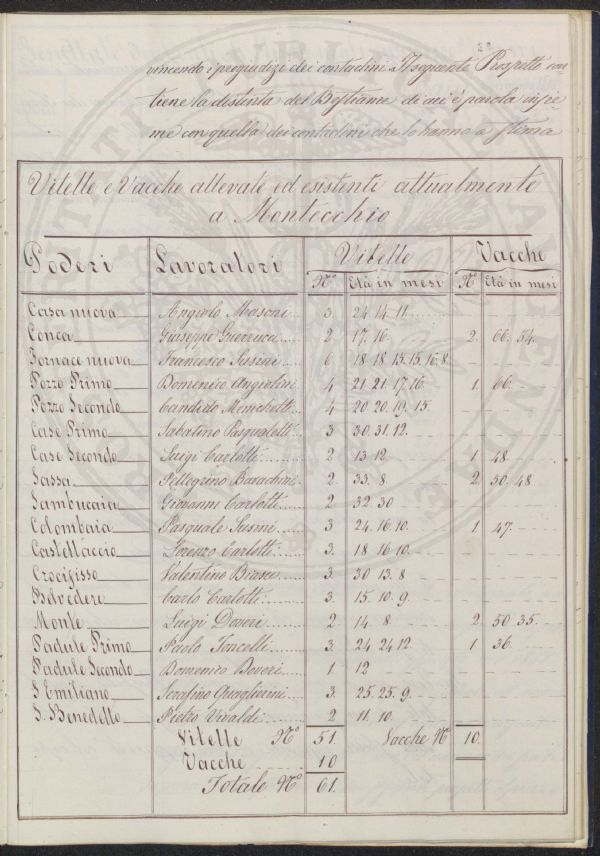 vincendo i pregiudizi dei contadini. Il seguente Prospetto con
tiene la distinta del Bestiame di cui è parola insie
me con quella dei contadini che lo hanno a stima
Vitelle e Vacche allevate ed esistenti attualmente
a Montecchio
Poderi Lavoratori Vitelle Vacche
N.o Età in mesi N.o Età in mesi
Casa nuova Angiolo Masoni 3. 24. 14. 11.
Conca Giuseppe Guerrucci 2. 17. 16. 2. 66. 54.
Fornace nuova Francesco Susini 6 18. 18. 15. 15. 16. 8.
Pozzo Primo Domenico Angiolini 4 21. 21. 17. 16. 1. 66.
Pozzo Secondo Candido Menichetti 4 20. 20. 19. 15.
Case Primo Sabatino Pasqualetti 3 30. 31. 12.
Case Secondo Luigi Carlotti 2 13. 12. 1. 48.
Sassa Pellegrino Barachini 2. 33. 8. 2. 50. 48
Sambucaia Giovanni Carlotti 2. 32. 30
Colombaia Pasquale Susini 3. 24. 16. 10. 1. 47.
Castellaccio Lorenzo Carlotti 3. 18. 16. 10.
Crocifisso Valentino Biasci 3. 30. 13. 8
Belvedere Carlo Carlotti 3. 15. 10. 9.
Monte Luigi Doveri 2. 14. 8. 2. 50. 35.
Padule Primo Paolo Toncelli 3. 24. 24. 12. 1. 36.
Padule Secondo Domenico Doveri 1. 12
S. Emiliano Serafino Quaglierini 3. 25. 25. 9.
S. Benedetto Pietro Vivaldi 2 11. 10.
Vitelle N.o 51. Vacche N.o 10.
Vacche 10
Totale N.o 61.